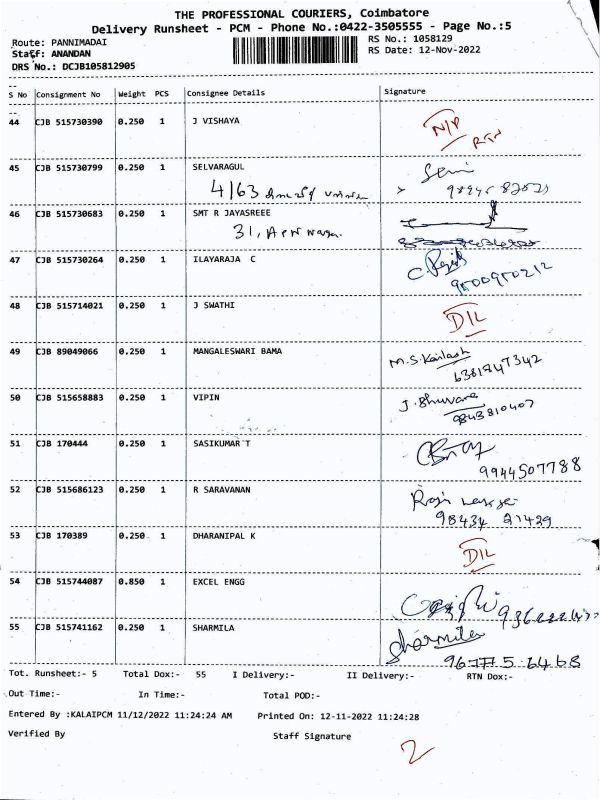 THE PROFESSIONAL COURIERS, Coimbatore
Delivery Runsheet - PCM - Phone No.:0422-3505555 - Page No.:5
Route: PANNIMADAI RS No.: 1058129
Staff: ANANDAN RS Date: 12-Nov-2022
DRS No.: DCJB105812905
S No Consignment No Weight PCS Consignee Details Signature
44 CJB 515730390 0.250 1 J VISHAYA
RTN
45 CJB 515730799 0.250 1 SELVARAGUL
4/63
46 CJB 515730683 0.250 1 SMT R JAYASREEE
31,
47 CJB 515730264 0.250 1 ILAYARAJA C
9500950212
48 CJB 515714021 0.250 1 J SWATHI
D/L
49 CJB 89049066 0.250 1 MANGALESWARI BAMA M.S.Kailash
6381847342
50 CJB 515658883 0.250 1 VIPIN J.Bhuvana
9843810407
51 CJB 170444 0.250 1 SASIKUMAR T
9944507788
52 CJB 515686123 0.250 1 R SARAVANAN
98434 21429
53 CJB 170389 0.250 1 DHARANIPAL K
D/L
54 CJB 515744087 0.850 1 EXCEL ENGG
55 CJB 515741162 0.250 1 SHARMILA Sharmila
Tot. Runsheet:- 5 Total Dox:- 55 I Delivery:- II Delivery:- RTN Dox:-
Out Time:- In Time:- Total POD:-
Entered By :KALAIPCM 11/12/2022 11:24:24 AM Printed On: 12-11-2022 11:24:28
Verified By Staff Signature
2